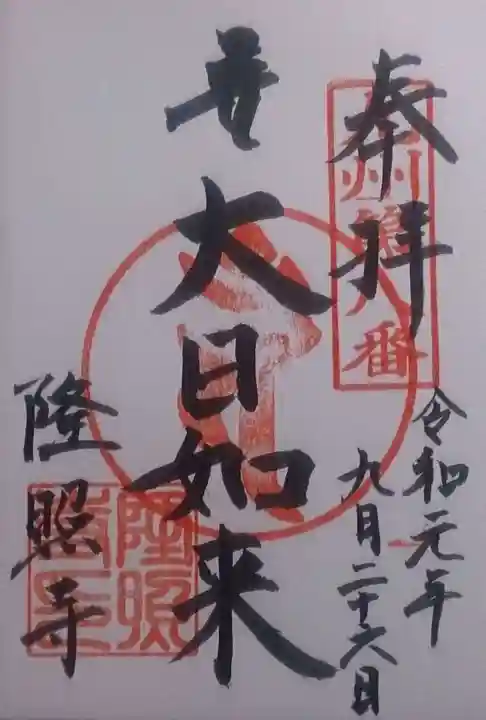 奉拝
九州第八番
令和元年
九月二十六日
大日如来
隆照寺
隆照